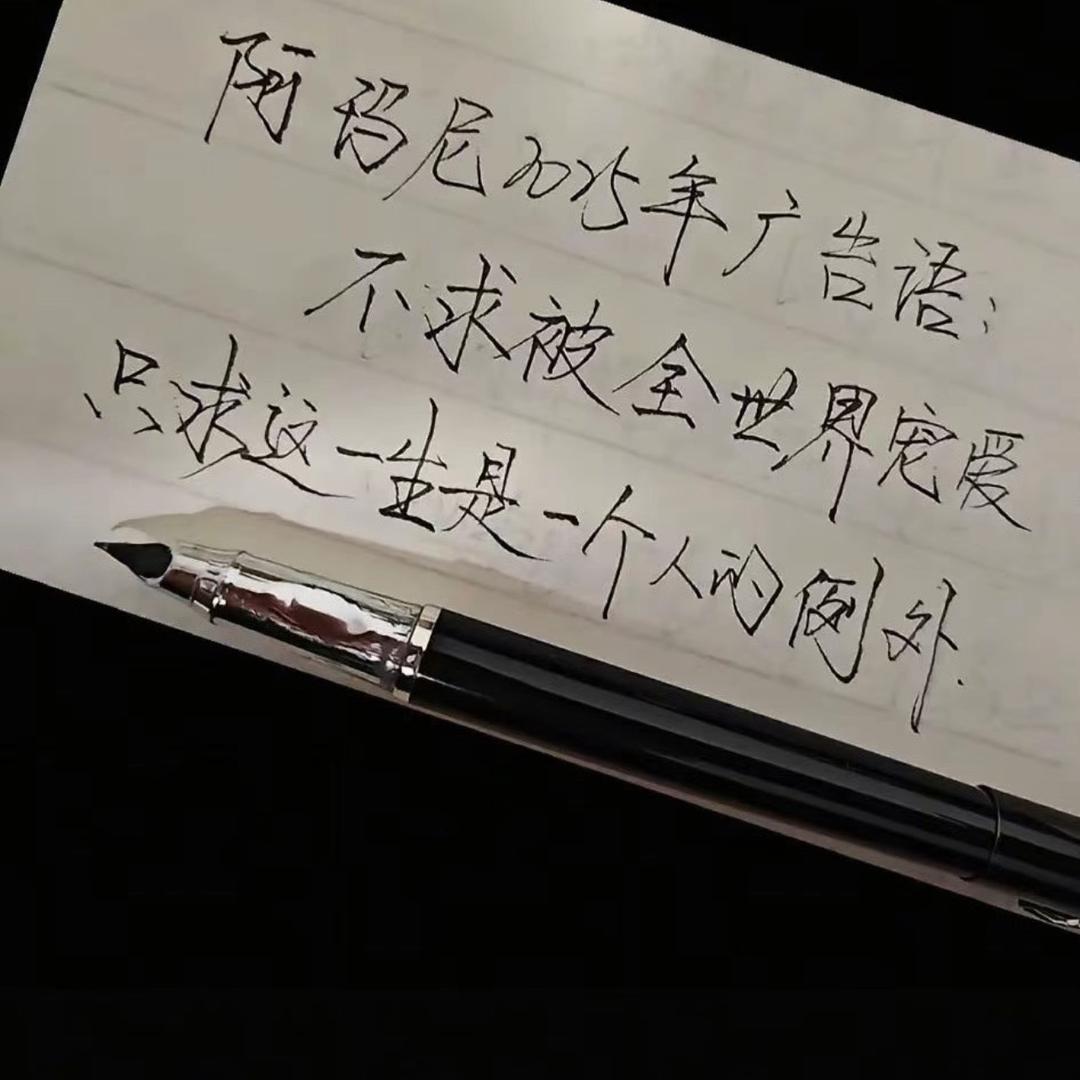 阿玛尼2025年广告语：
不求被全世界宠爱
只求这一生是一个人的例外.